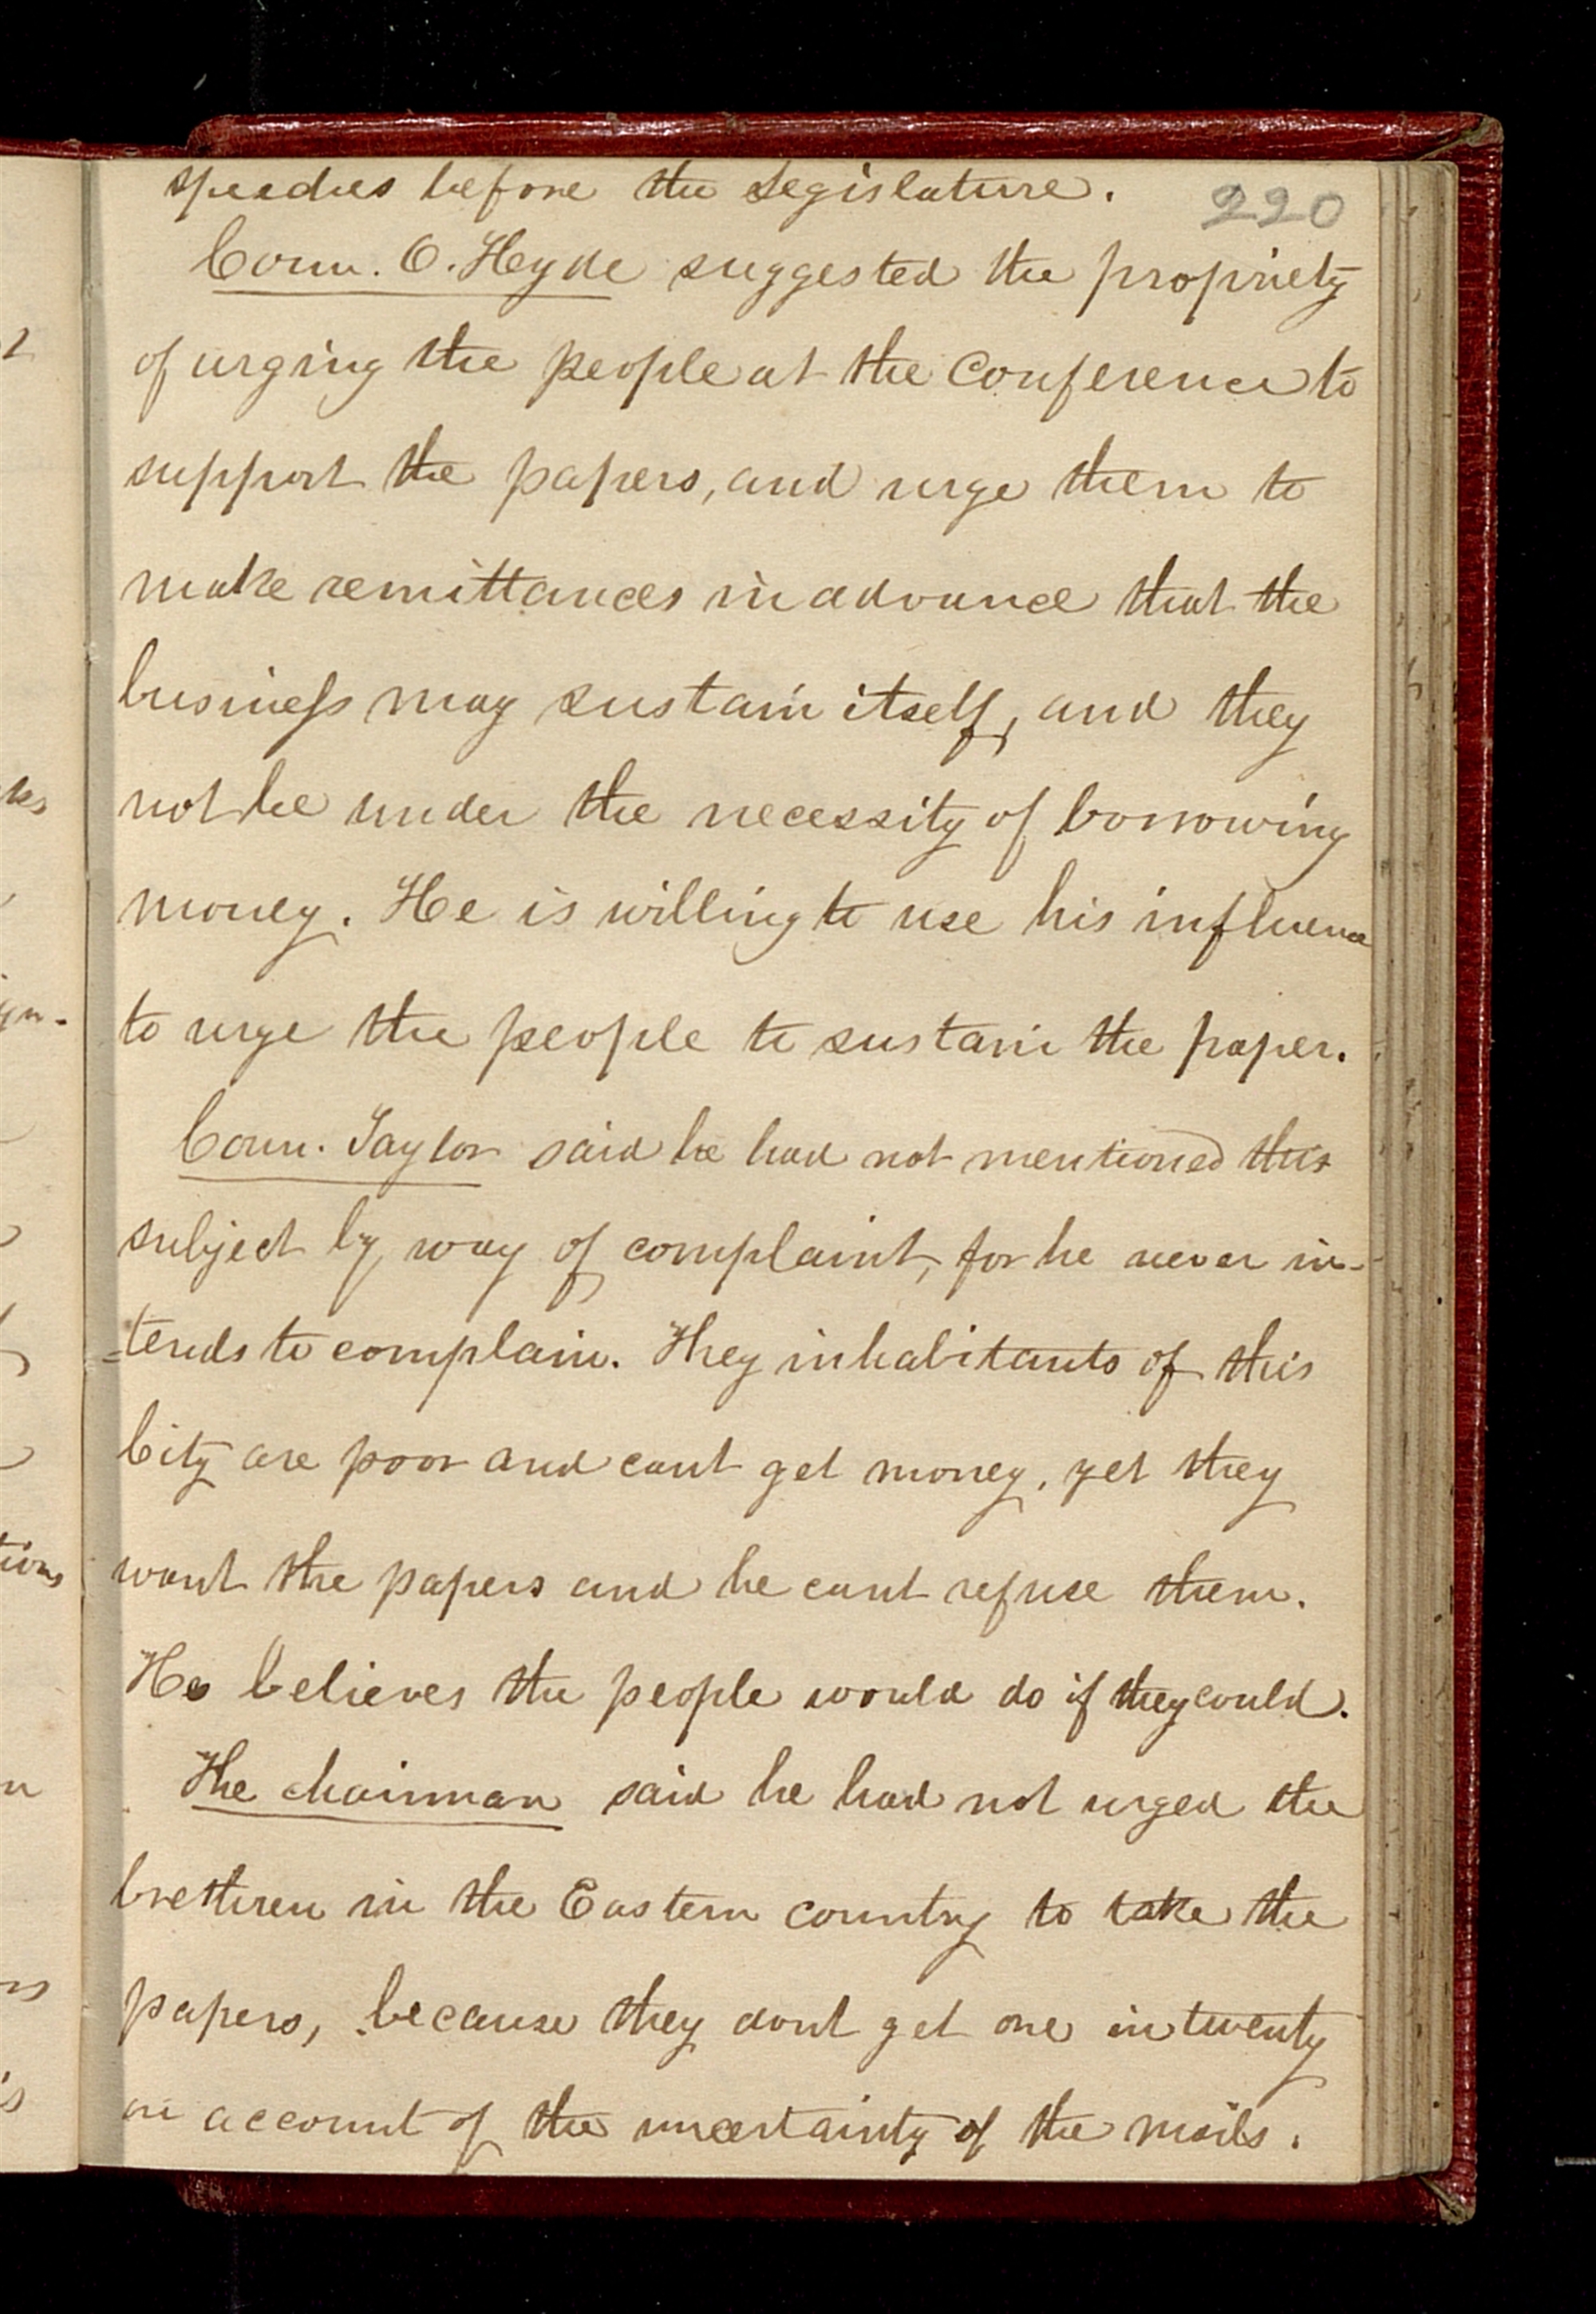 speeches before the Legislature.
220
Coun. O. Hyde suggested the propriety
of urging the people at the Conference to
support the papers, and urge them to
make remittances in advance that the
business may sustain itself, and they
not be under the necessity of borrowing
money. He is willing to use his influence
to urge the people to sustain the paper.
Coun. Taylor said he had not mentioned this
subject by way of complaint, for he never in-
=tends to complain. They inhabitants of this
City are poor and cant get money, yet they
want the papers and he cant refuse them.
He believes the people would do if they could.
The chairman said he had not urged the
brethren in the Eastern country to take the
papers, because they dont get one in twenty
on account of the uncertainty of the mails.